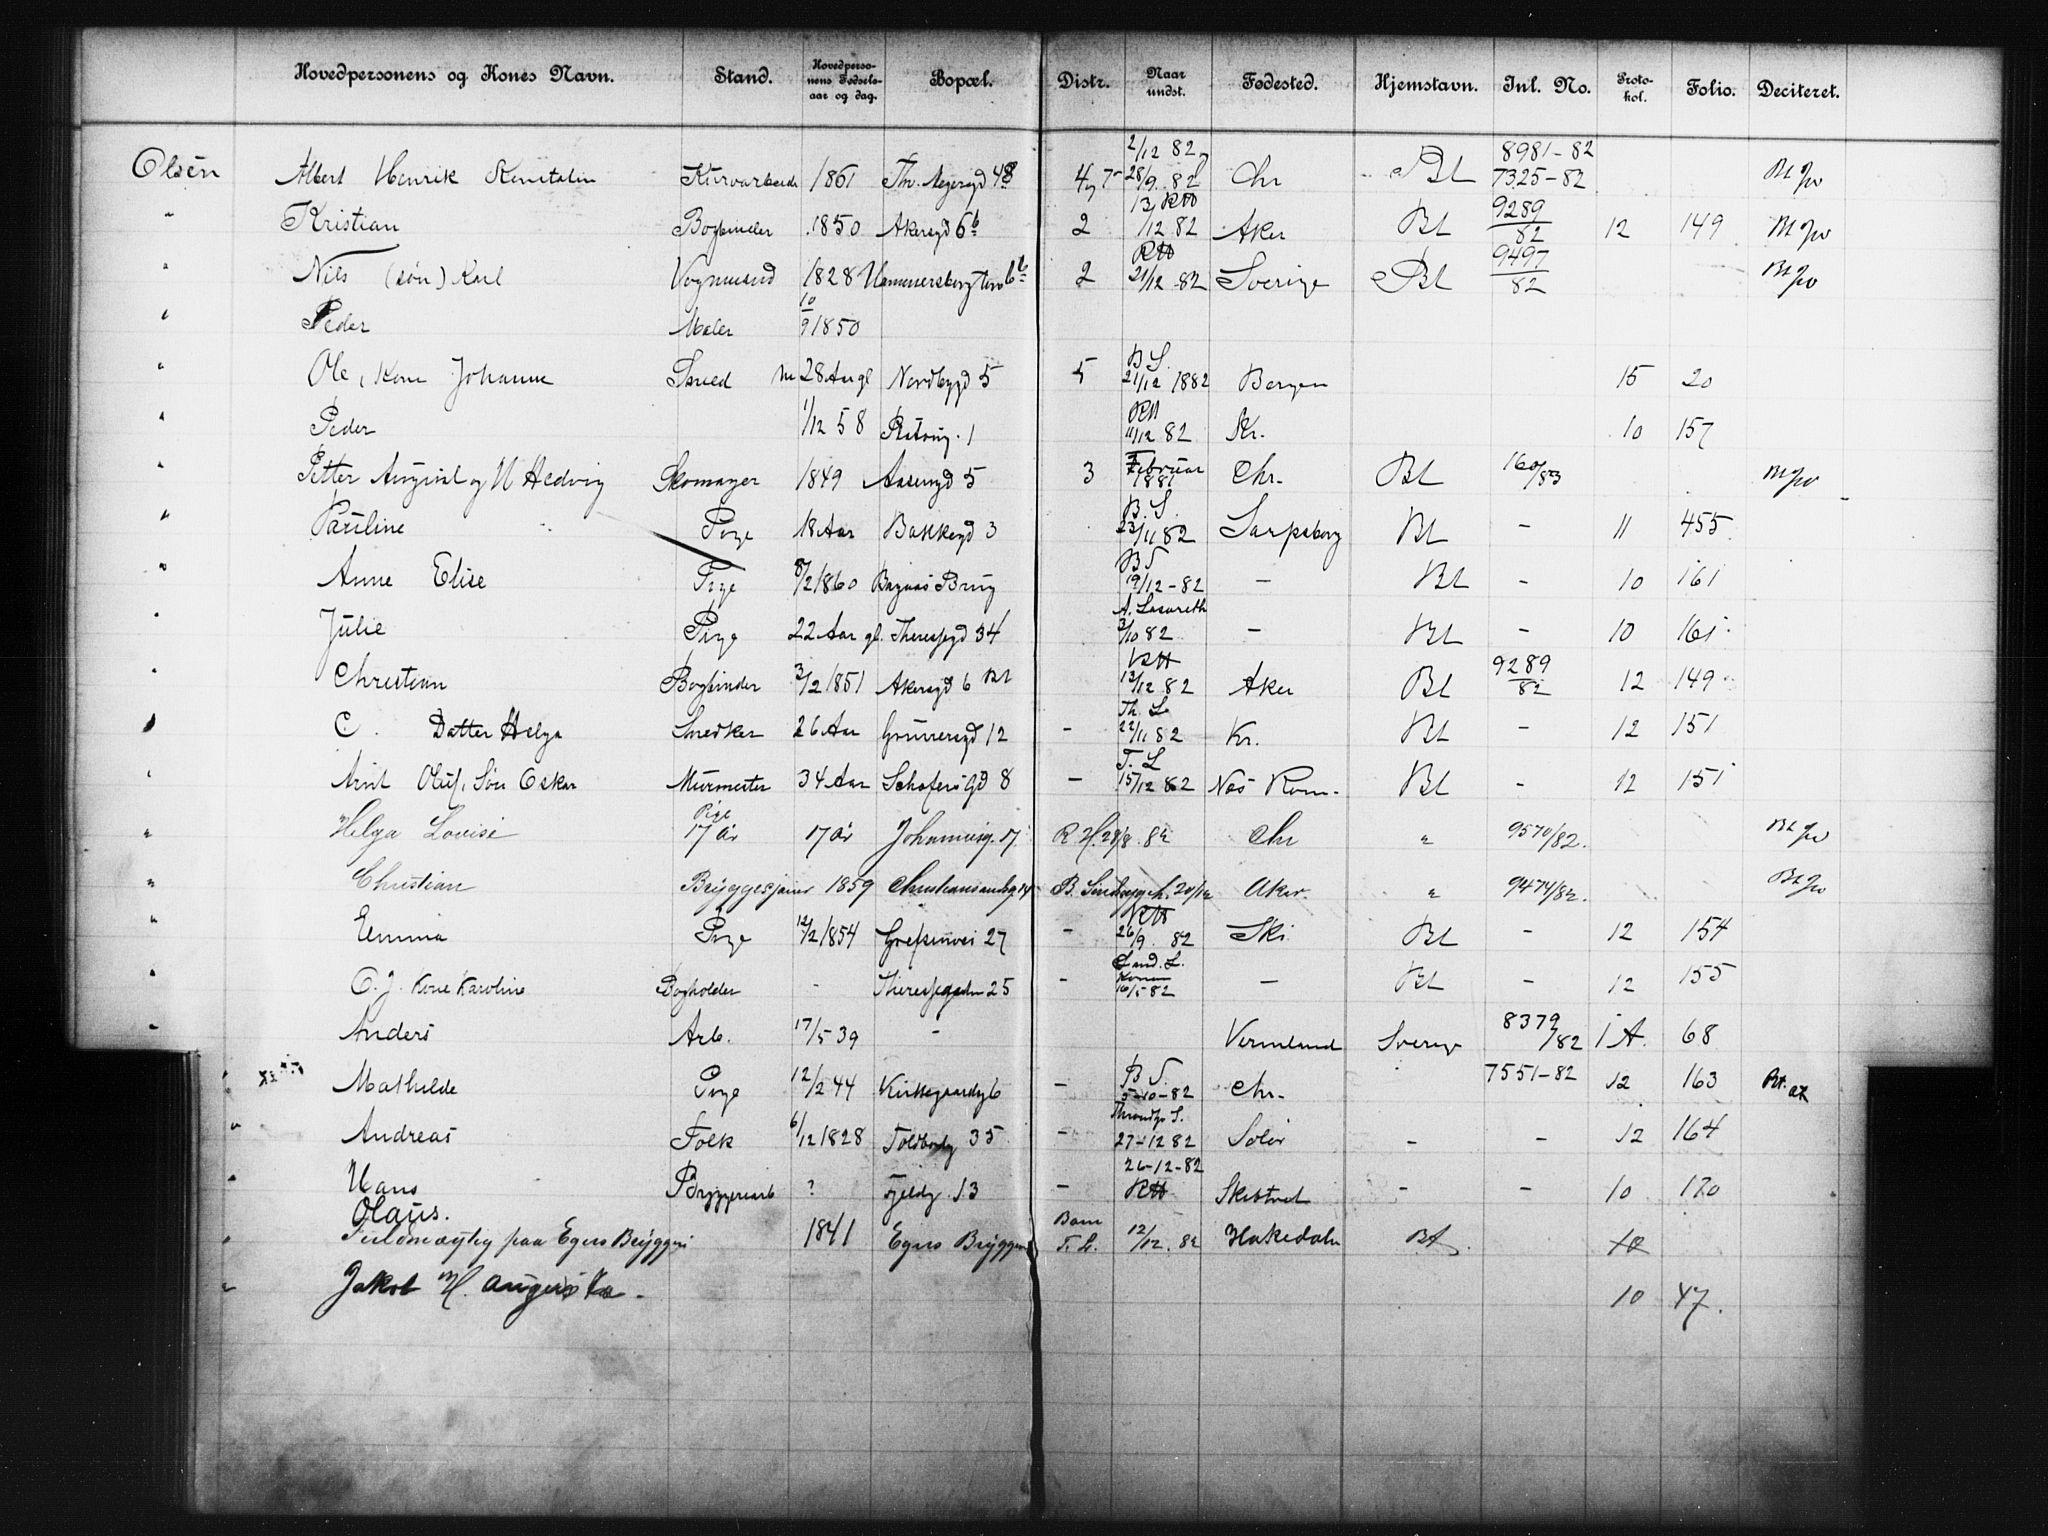 Hovedpersonens og Kones Navn. Stand. Hovedpersonens Fødselsaar og dag. Bopæl. Distr. Naar undst. Fødested. Hjemstavn. Inl. No. Protokol. Folio. Deciteret.
2/12 82 8981-82
Olsen Albert Henrik Kurvarbeide 1861 Th. Meyersgd 48 4 7 28/9 82 Chr Bt 7325-82
" Kristian Bogbinder 1850 Akersgd 6b 2 13/12 82 Aker Bt 9289/82 12 149
" Nils (søn) Karl Vognmand 1828 2 RH 21/12 82 Sverige Bt 9497/82
" Peder Maler 10/9 1850
" Ole, Kone Johanne Smed 28 Aar gl Nordbygd 5 5 B S. 21/12 1882 Bergen 15 20
" Peder 1/12 58 1 RH 11/12 82 Kr. 10 157
" Petter August og Hedvig Skomager 1849 Aasengd 5 3 Februar 1881 Chr. Bt 160/83
" Pauline Pige 18 Aar Bakkegd 3 B. S. 23/11 82 Sarpsborg Bt - 11 455
" Anne Elise Pige 8/2 1860 Bagaas Brug B S 19/12-82 - Bt - 10 161
" Julie Pige 22 Aar gl. Theresesgd 34 A. Lasareth 3/10 82 - Bt - 10 161
" Christian Bogbinder 3/2 1851 Akersgd 6 Bt RH 13/12 82 Aker Bt 9289/82 12 149
" C. Datter Helga Snedker 26 Aar Grünersgd 12 - Th. L 22/11 82 Kr. Bt - 12 151
" Arnt Oluf, Søn Oskar Murmester 34 Aar Schafers Gd 8 - T. L 15/12 82 Næs Rom. Bt - 12 151
" Helga Lovise Pige 17 År 17 år Johannesg. 17 R H. 28/8. 82 Chr " 9570/82.
" Christian Bryggesjauer 1859 20/12 Aker. " 9474/82.
" Emma Pige 12/2 1854 Grefsenvei 27 - RH 26/9. 82 Ski Bt - 12 154
" O. J. Kone Karoline Bogholder - Theresesgaden 25 - Sand. L. Konen 16/5 82 - Bt - 12 155
" Anders Arb. 17/5 39 - Vermland Sverige 8379/82 1 A. 68
Mathilde Pige 12/2 44 Kirkegaardg 6 - B S. 5-10-82 Chr. 7551-82 12 163
" Andreas Folk 6/12 1828 Toldbodg 35 - Throndhj S. 27-12 82 Solør - - 12 164
" Hans Bryggeriarb ? Fjeldg. 13 - 26-12-82 RH Skibtvet - - 10 170
Olaus.
" Fuldmægtig paa Egers Bryggeri 1841 Egers Bryggeri Barn T. L. 12/12. 82 Hakedaln Bt. 10
" Jakob M. 10 47.